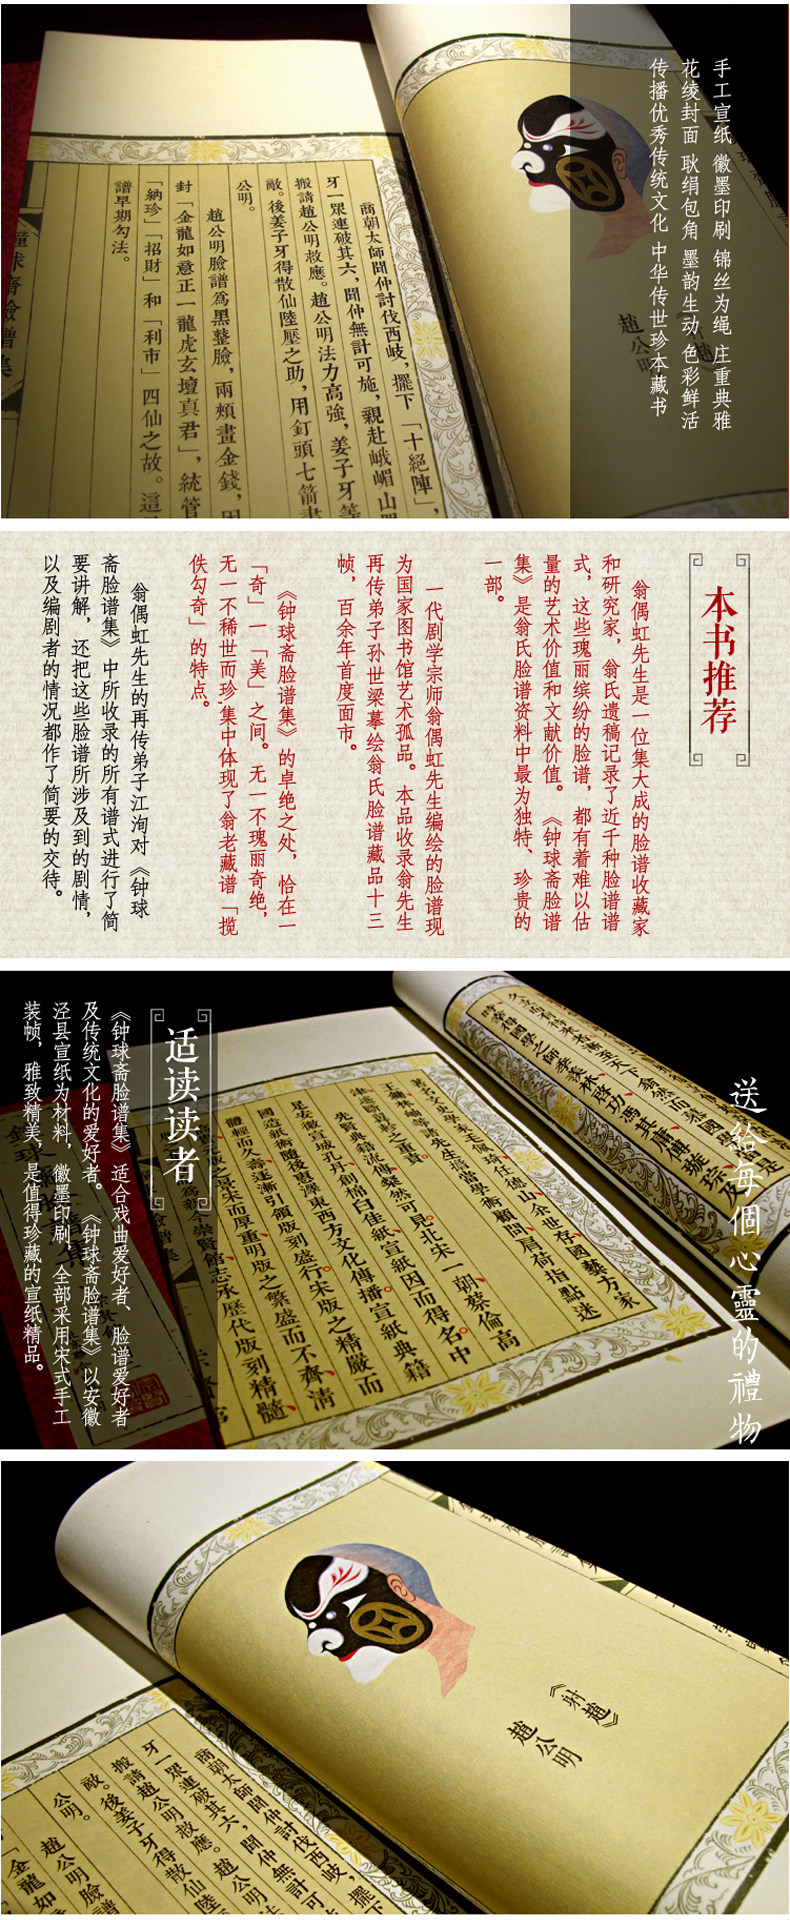 手工宣纸 徽墨印刷 锦丝为绳 庄重典雅
花绫封面 耿绢包角 墨韵生动 色彩鲜活
传播优秀传统文化 中华传世珍本藏书
趙公明
商朝太師聞仲討伐西岐，擺下「十絕陣」，
牙一眾連破其六，聞仲無計可施，親赴峨嵋山
搬請趙公明救應。趙公明法力高強，姜子牙等
敵。後姜子牙得散仙陸壓之助，用釘頭七箭書
公明。
趙公明臉譜為黑整臉，兩頰畫金錢，因
封「金龍如意正一龍虎玄壇真君」，統管
「納珍」「招財」和「利市」四仙之故。這
譜早期勾法。
球齋臉譜集
本书推荐
翁偶虹先生是一位集大成的脸谱收藏家
和研究家，翁氏遗稿记录了近千种脸谱谱
式，这些瑰丽缤纷的脸谱，都有着难以估
量的艺术价值和文献价值。《钟球斋脸谱
集》是翁氏脸谱资料中最为独特、珍贵的
一部。
一代剧学宗师翁偶虹先生编绘的脸谱现
为国家图书馆艺术孤品。本品收录翁先生
再传弟子孙世梁摹绘翁氏脸谱藏品十三
帧，百余年首度面市。
《钟球斋脸谱集》的卓绝之处，恰在一
「奇」一「美」之间。无一不瑰丽奇绝，
无一不稀世而珍,集中体现了翁老藏谱「揽
佚勾奇」的特点。
翁偶虹先生的再传弟子江洵对《钟球
斋脸谱集》中所收录的所有谱式进行了简
要讲解，还把这些脸谱所涉及到的剧情，
以及编剧者的情况都作了简要的交待。
送給每個心靈的禮物
時幸得國學之師季羨林、啟功、馮其庸、傅璇琮、及
著名文史學家毛佩琦、任德山、余世存、國藝方家
王鏞、林輔等諸先生為當學術顧問、肩荷指點迷
津、匡謬補之重責。
先賢典籍流傳、粲然可見。北宋一朝、蔡倫高
足安徽宣城孔丹、創楠白佳紙、宣紙因而得名、中
國造紙術隨後惠澤東西方文化傳播。宣紙典籍
體輕而久壽、逐漸引領版刻盛行。宋版之精嚴而
適讀读者
《钟球斋脸谱集》适合戏曲爱好者、脸谱爱好者
及传统文化的爱好者。《钟球斋脸谱集》以安徽
泾县宣纸为材料，徽墨印刷，全部采用宋式手工
装帧，雅致精美，是值得珍藏的宣纸精品。
《射趙》
趙公明
商朝太師聞仲討伐西岐，擺
牙一眾連破其六，聞仲無計可
搬請趙公明救應。趙公
敵。後姜子牙得散仙陸
公明。
趙公明臉譜
「金龍如